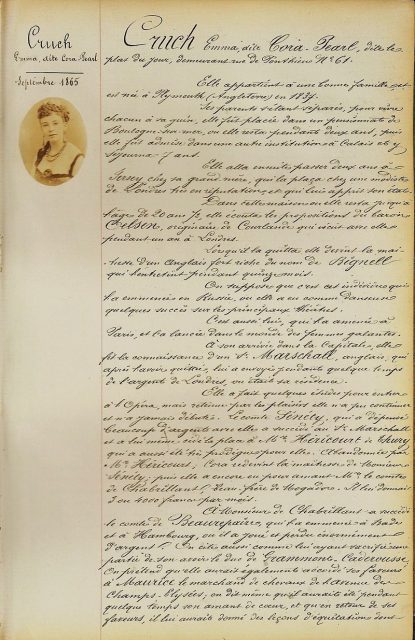 Cruch
Emma, dite Cora Pearl
Septembre 1865
Cruch Emma, dite Cora-Pearl, dite le
plat du jour, demeurant rue de Ponthieu Nº 61.
Elle appartient à une bonne famille et
est née à Plymouth (Angleterre) en 1837.
Ses parents s'étant séparés, pour vivre
chacun à sa guise, elle fut placée dans un pensionnat de
Boulogne-sur-mer, où elle resta pendant deux ans, puis
elle fut admise dans une autre institution à Calais et y
séjourna 7 ans.
Elle alla ensuite passer deux ans à
Jersey chez sa grand'mère, qui la plaça chez une modiste
de Londres très en réputation, et qui lui apprit son état.
Dans cette maison où elle resta jusqu'à
l'âge de 20 ans ½ elle écouta les propositions du baron
originaire de Courlande qui vécut avec elle
pendant un an à Londres.
Lorsqu'il la quitta elle devint la maî-
tresse d'un Anglais fort riche du nom de Bignell
qui l'entretint pendant quinze mois.
On suppose que c'est cet individu qui
l'a emmenée en Russie, où elle a eu comme danseuse
quelques succès sur les principaux théâtres.
C'est aussi lui, qui l'a amenée à
Paris, et l'a lancée dans le monde des femmes galantes.
A son arrivée dans la Capitale, elle
fit la connaissance d'un Sr. Marschall, anglais, qui
après l'avoir quittée, lui a envoyé pendant quelque temps
de l'argent de Londres, où était sa résidence.
Elle a fait quelques études pour entrer
à l'Opéra, mais retenue par les plaisirs elle n'a pu continuer
et n'a jamais débuté. Le comte qui a dépensé
beaucoup d'argent avec elle a succédé au Sr. Marschall
et a lui même cédé la place à Mr. Héricourt de Thury
qui a aussi été très prodigue pour elle. Abandonnée par
Mr. Héricourt, Cora redevint la maîtresse de Monsieur
puis elle a encore eu pour amant Mr. le comte
de Chabrillant, beau frère de Mogador. Il lui donnait
3 ou 4000 francs par mois.
A Monsieur de Chabrillant a succédé
le comte de Beaurepaire, qui l'a emmenée à Bade
et à Hambourg, où il a joué et perdu énormément
d'argent. On cite aussi comme lui ayant sacrifié une
partie de son avoir le duc de Grammont Caderousse.
On prétend qu'elle aurait également accordé ses faveurs
à Maurice le marchand de chevaux de l'avenue des
Champs-Elysées, on dit même qu'il aurait été pendant
quelque temps son amant de cœur, et qu'en retour de ses
faveurs, il lui aurait donné des leçons d'équitation dont